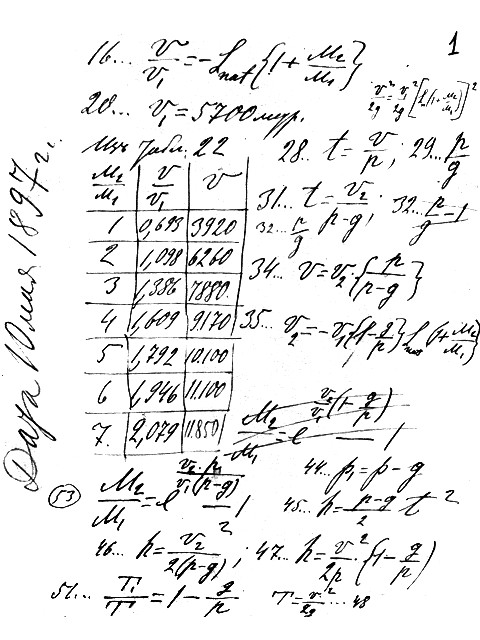 1
16... v/v₁ = -L nat {1 + M₂/M₁}
v²/2g = v₁²/2g [ln(1 + M₂/M₁)]²
20... v₁ = 5700 метр.
Из Табл. 22
28... t = v/p; 29... p/g
M₂/M₁ v/v₁ v
1 0,693 3920
2 1,098 6260
3 1,386 7880
4 1,609 9170
5 1,792 10.100
6 1,946 11.100
7. 2,079 11.850
31... t = v₂/p-g; 32... p/g - 1
32... p/g
34... v = v₂ {p/(p-g)}
35... v₂ = -v₁{1 - g/p} L nat (1 + M₂/M₁)
M₂/M₁ = e v₂/v₁(1 - g/p) - 1
44... p₁ = p - g
53 M₂/M₁ = e v₂·p₁/v₁(p-g) - 1
45... h = p-g/2 t²
46... h = v₂²/2(p-g); 47... h = v²/2p · (1 - g/p)
51... T₁/T = 1 - g/p
T = v²/2g ... 48
Дата 10 июля 1897 г.